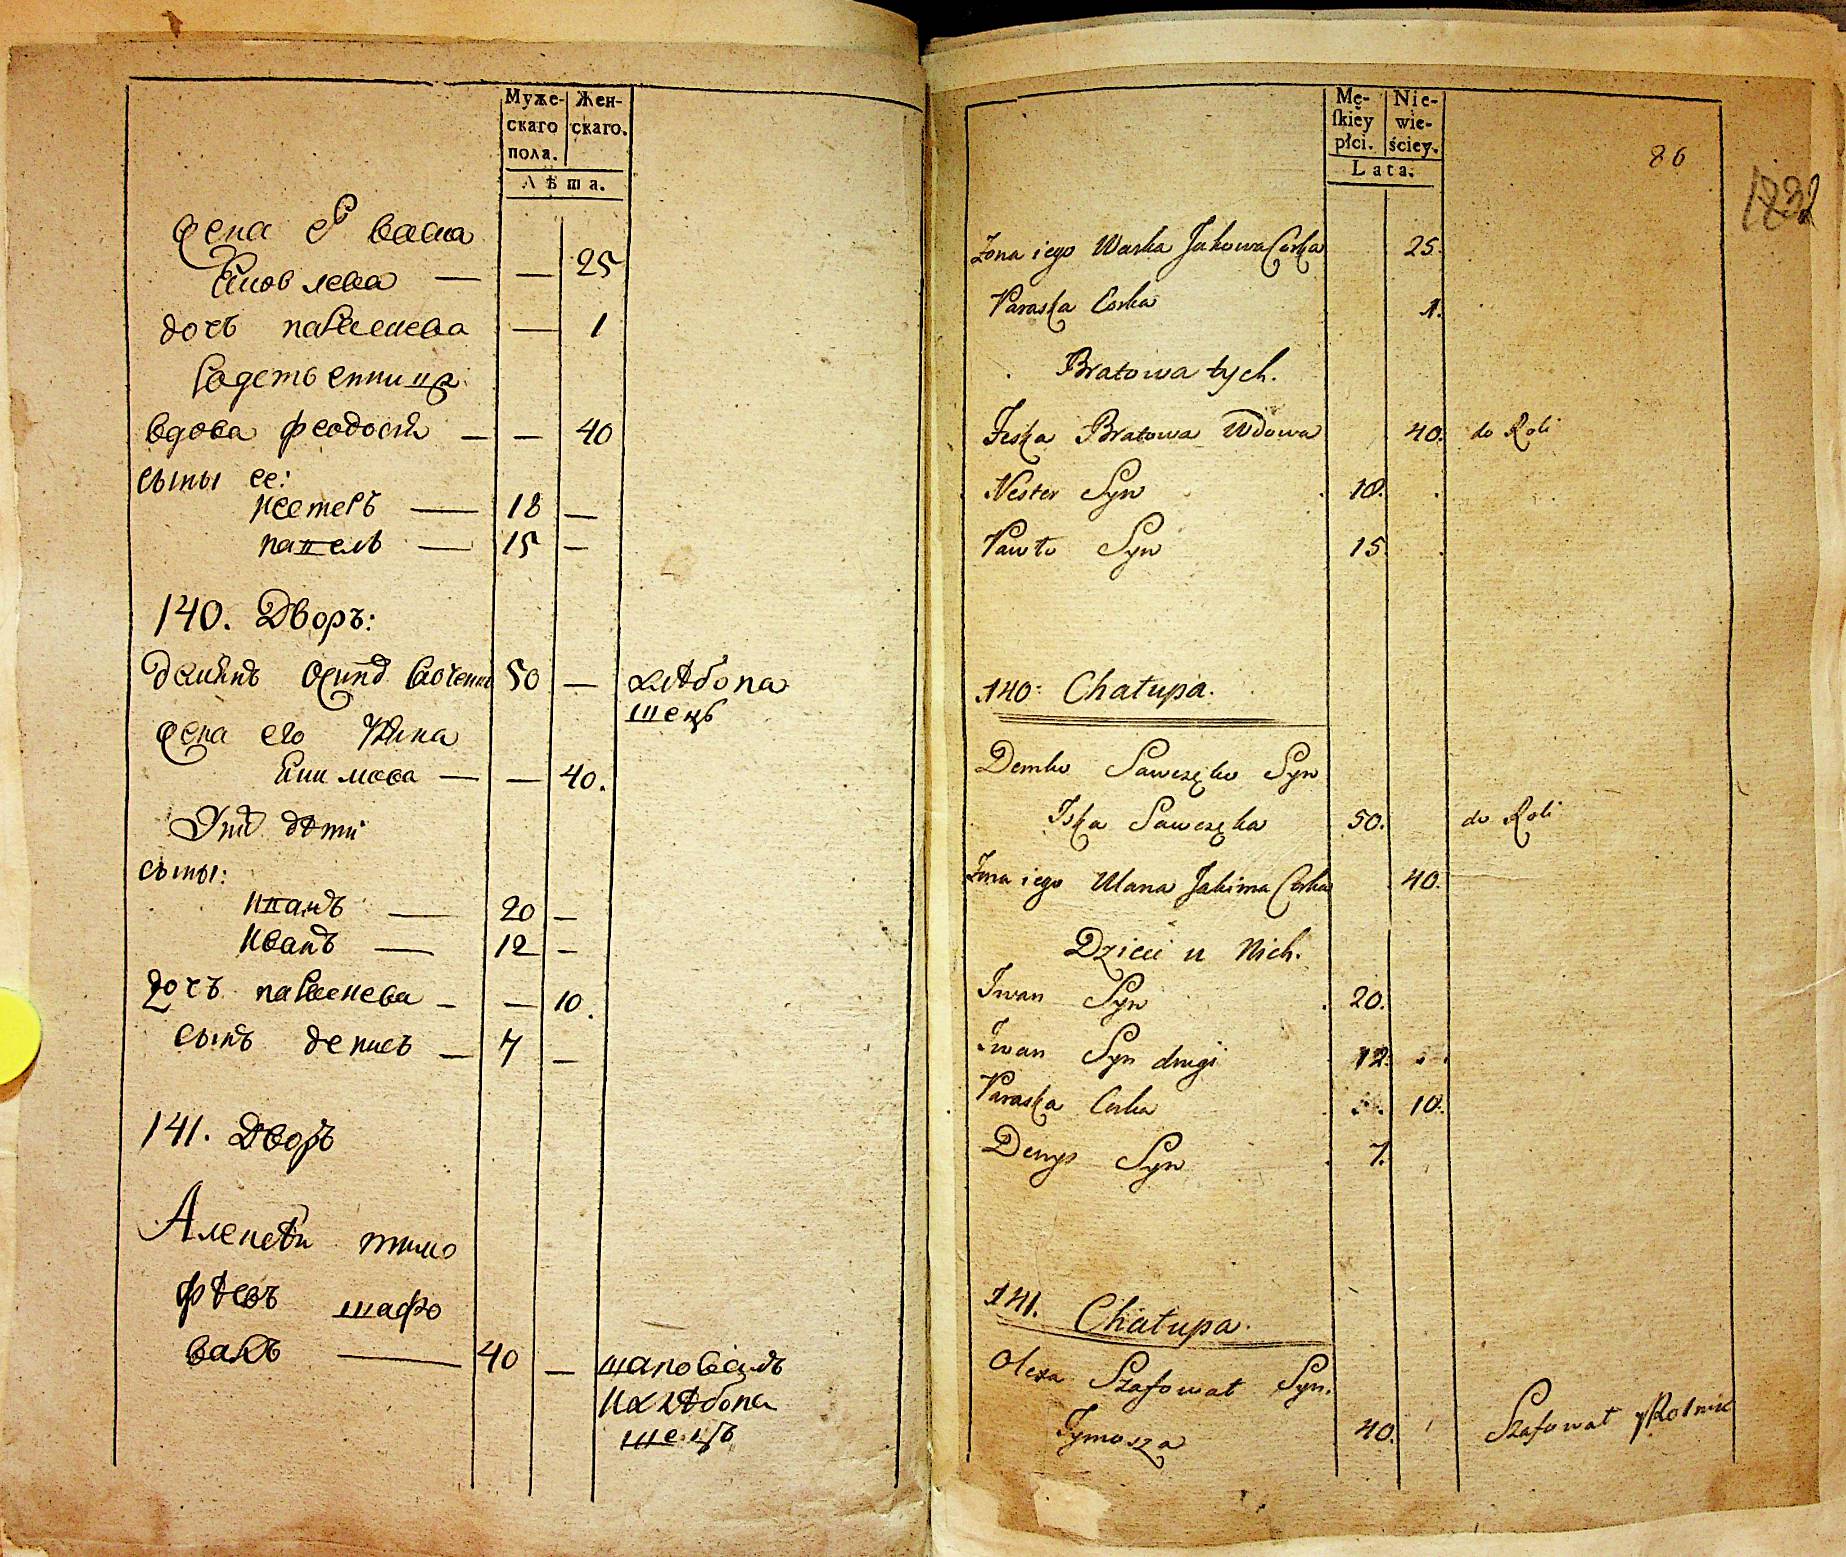 Муже-
скаго
пола.
Жен-
скаго.
Лѣта.
жена его васка
Яковлева — — 25
дочь парасκева — 1
Родственница
вдова феодосия — — 40
сыны ее:
нестеръ — 18 —
павелъ — 15 —
140. Дворъ:
демянъ осиповъ савченко 50 — хлѣбопа
шецъ
жена его Улиана
Якимова — — 40.
Ихъ дѣти
сыны:
иванъ — 20 —
иванъ — 12 —
дочь параскева — — 10.
сынъ денисъ — 7 —
141. Дворъ
Алексѣй тимо
фѣевъ шафо
валъ — 40 — шаповалъ
и хлѣбопа
шецъ
Mę-
skiey
płci.
Nie-
wie-
ściey.
Lata.
86
Żona iego Waska Jakowa Corka 25.
Paraska Corka 1.
Bratowa tych.
Feska Bratowa Wdowa 40. do Roli
Nester Syn 18.
Pawło Syn 15.
140. Chałupa.
Demko Sawczęko Syn
Iska Sawczęka 50. do Roli
Żona iego Ulana Jakima Corka 40.
Dzieci u Nich.
Iwan Syn 20.
Iwan Syn drugi 12.
Paraska Corka 10.
Denys Syn 7.
141. Chałupa.
Olexa Szafował Syn.
Tymosza 40. Szafował y Rolnik